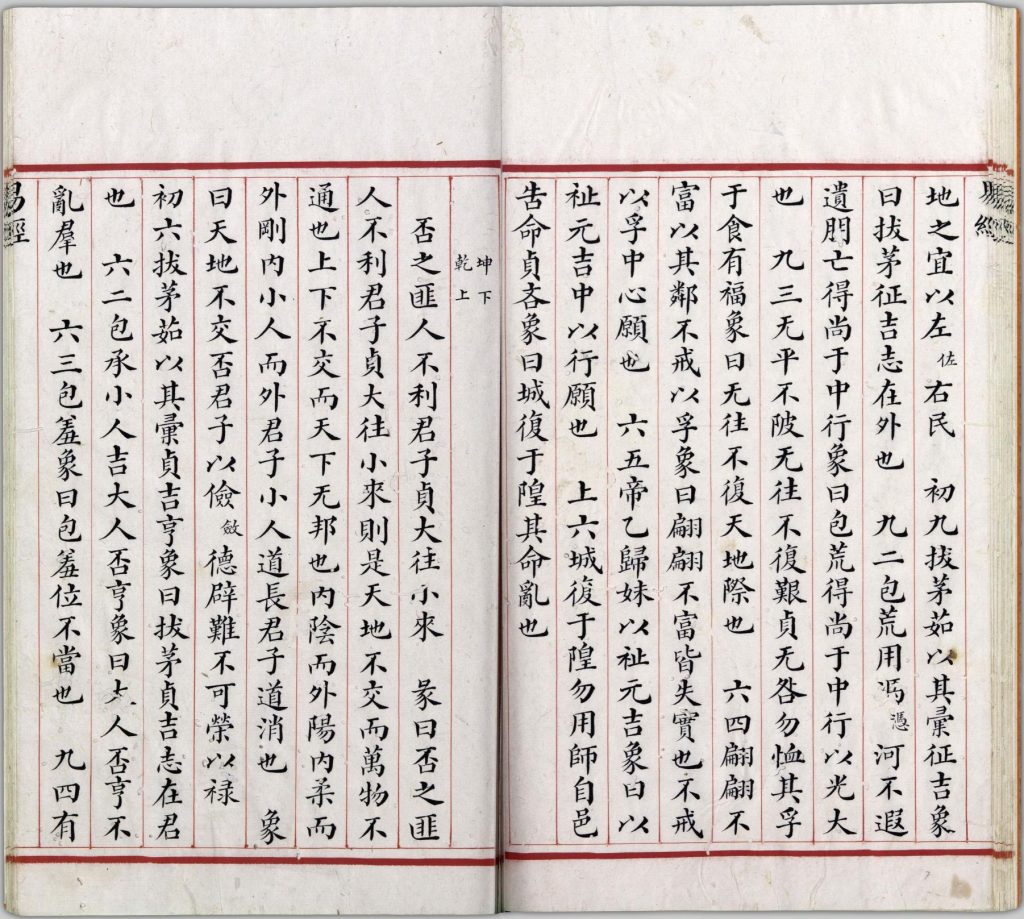 易經
地之宜以左佐右民　初九拔茅茹以其彙征吉象
曰拔茅征吉志在外也　九二包荒用馮憑河不遐
遺朋亡得尚于中行象曰包荒得尚于中行以光大
也　九三无平不陂无往不復艱貞无咎勿恤其孚
于食有福象曰无往不復天地際也　六四翩翩不
富以其鄰不戒以孚象曰翩翩不富皆失實也不戒
以孚中心願也　六五帝乙歸妹以祉元吉象曰以
祉元吉中以行願也　上六城復于隍勿用師自邑
告命貞吝象曰城復于隍其命亂也
坤下
乾上
否之匪人不利君子貞大往小來　彖曰否之匪
人不利君子貞大往小來則是天地不交而萬物不
通也上下不交而天下无邦也內陰而外陽內柔而
外剛內小人而外君子小人道長君子道消也　象
曰天地不交否君子以儉斂德辟難不可榮以祿
初六拔茅茹以其彙貞吉亨象曰拔茅貞吉志在君
也　六二包承小人吉大人否亨象曰大人否亨不
亂羣也　六三包羞象曰包羞位不當也　九四有
易經